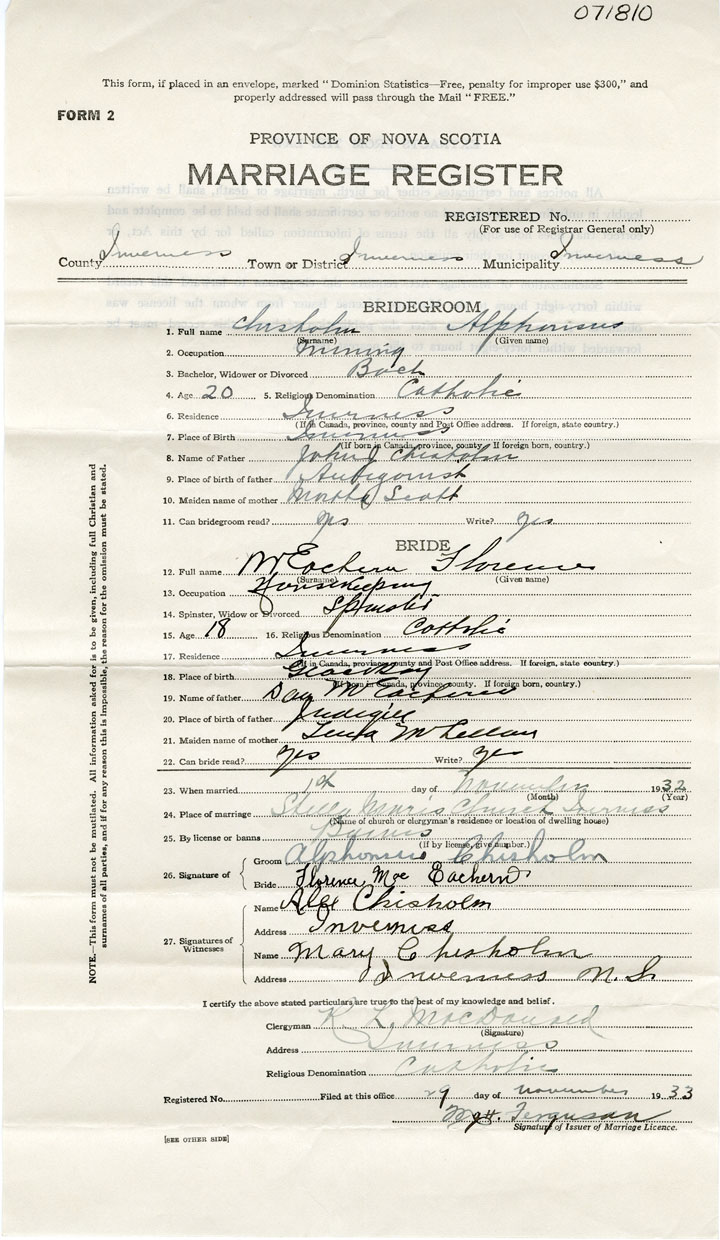 071810
This form, if placed in an envelope, marked "Dominion Statistics—Free, penalty for improper use $300," and
properly addressed will pass through the Mail "FREE."
FORM 2
PROVINCE OF NOVA SCOTIA
MARRIAGE REGISTER
REGISTERED No.
(For use of Registrar General only)
County Inverness Town or District Inverness Municipality Inverness
BRIDEGROOM
1. Full name Chisholm Alphonsus
(Surname) (Given name)
2. Occupation Mining
3. Bachelor, Widower or Divorced Bach
4. Age 20 5. Religious Denomination Catholic
6. Residence Inverness
(If in Canada, province, county and Post Office address. If foreign, state country.)
7. Place of Birth Inverness
(If born in Canada, province, county. If foreign born, country.)
8. Name of Father John J Chisholm
9. Place of birth of father Antigonish
10. Maiden name of mother Scott
11. Can bridegroom read? yes Write? yes
BRIDE
12. Full name McEachern Florence
(Surname) (Given name)
13. Occupation Housekeeping
14. Spinster, Widow or Divorced Spinster
15. Age 18 16. Religious Denomination Catholic
17. Residence Inverness
(If in Canada, province, county and Post Office address. If foreign, state country.)
18. Place of birth Glace Bay
(If born in Canada, province, county. If foreign born, country.)
19. Name of father Dan McEachern
20. Place of birth of father Judique
21. Maiden name of mother McLellan
22. Can bride read? Yes Write? Yes
23. When married 1st day of November 1932
(Month) (Year)
24. Place of marriage Stella Maris Church Inverness
(Name of church or clergyman's residence or location of dwelling house)
25. By license or banns Banns
(If by license, give number.)
26. Signature of Groom Alphonsus Chisholm
Bride Florence Mac Eachern
27. Signatures of Witnesses
Name Alex Chisholm
Address Inverness
Name Mary Chisholm
Address Inverness N.S.
I certify the above stated particulars are true to the best of my knowledge and belief.
Clergyman K. L. MacDonald
(Signature)
Address Inverness
Religious Denomination Catholic
Registered No. Filed at this office 29 day of November 1933
Ferguson
Signature of Issuer of Marriage Licence.
[SEE OTHER SIDE]
NOTE.—This form must not be mutilated. All information asked for is to be given, including full Christian and
surnames of all parties, and if for any reason this is impossible, the reason for the omission must be stated.